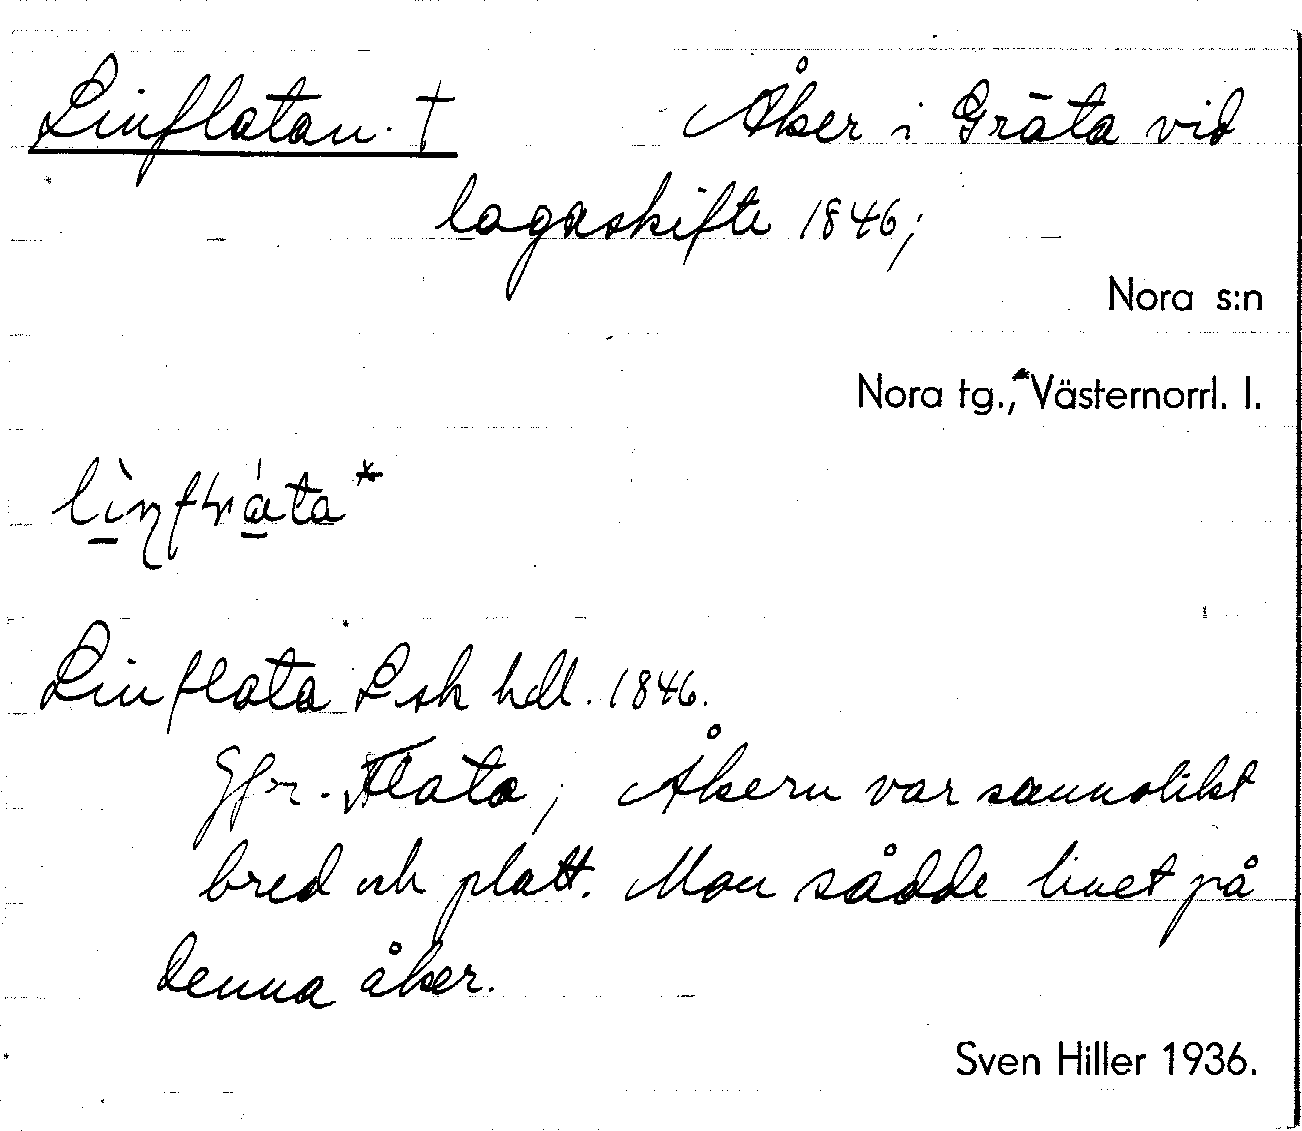 Linflatan. † Åker i Gräta vid
lagaskifte 1846;
Nora s:n
Nora tg., Västernorrl. l.
Linflata Lsk hdl. 1846.
Jfr. Flata; Åkern var sannolikt
bred och platt. Man sådde linet på
denna åker.
Sven Hiller 1936.